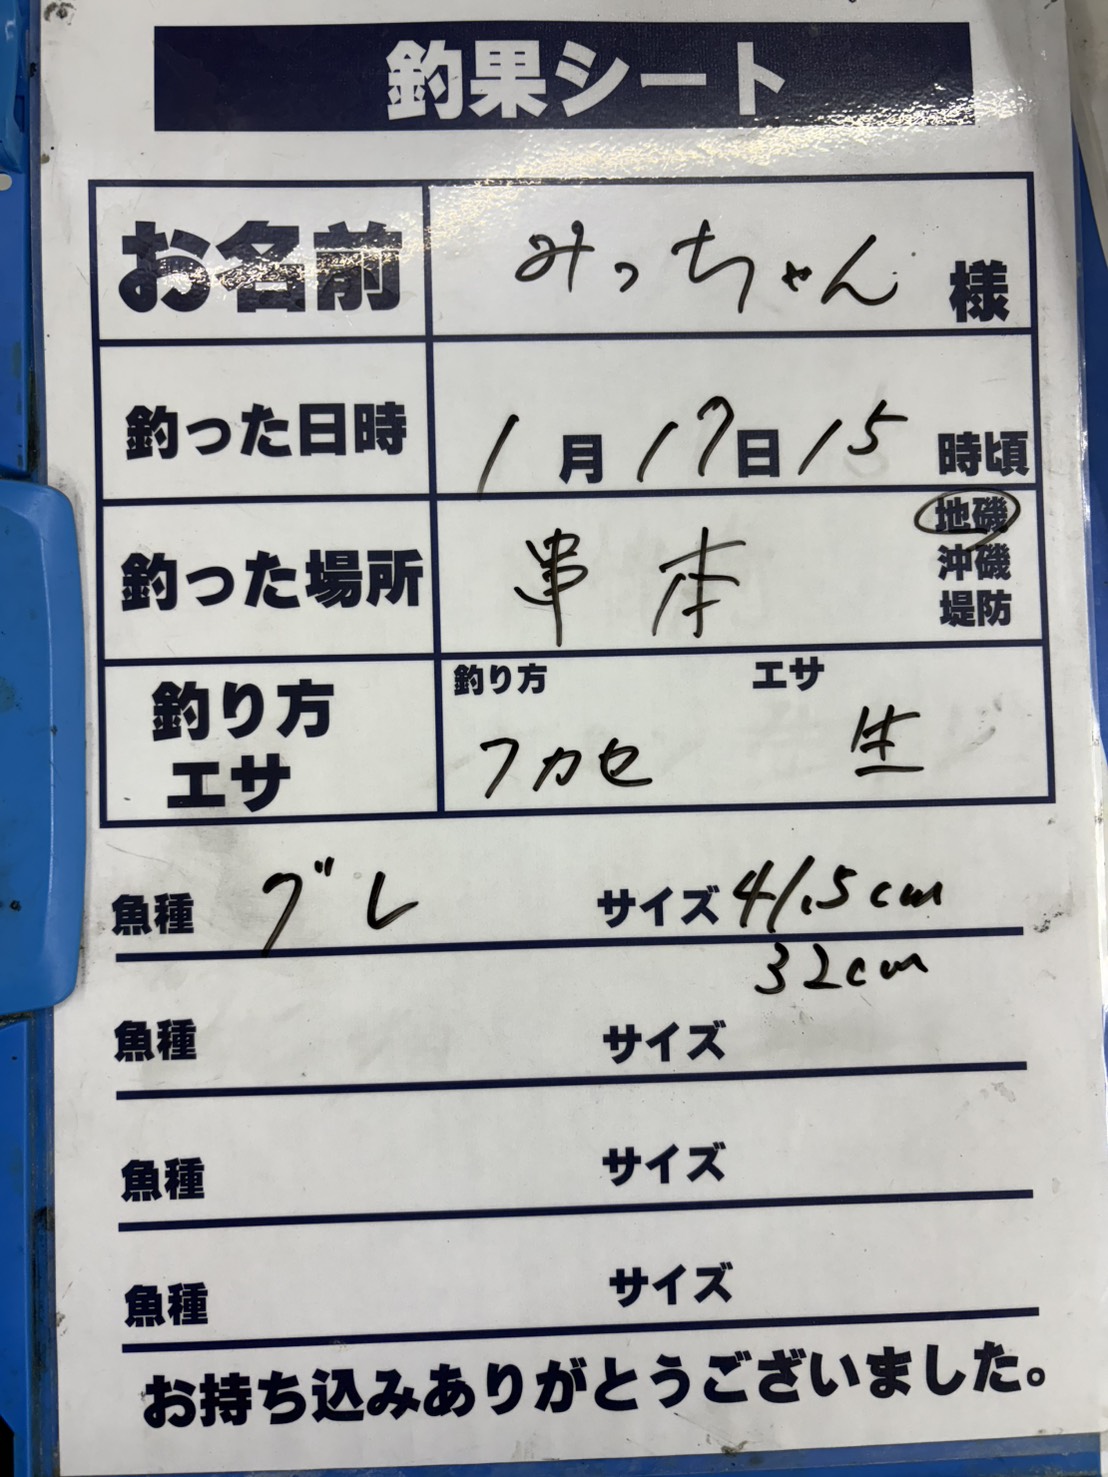 釣果シート
お名前 みっちゃん 様
釣った日時 1月17日15時頃
釣った場所 串本 地磯
沖磯
堤防
釣り方 エサ
釣り方 フカセ 生
エサ
魚種 グレ サイズ 41.5cm
32cm
魚種 サイズ
魚種 サイズ
魚種 サイズ
お持ち込みありがとうございました。